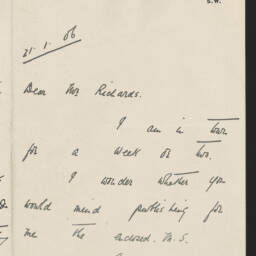 S.W.
21.1.06
Dear Mr Richards.
I am in town
for a week or two.
I wonder whether you
would mind publishing for
me the enclosed M.S.